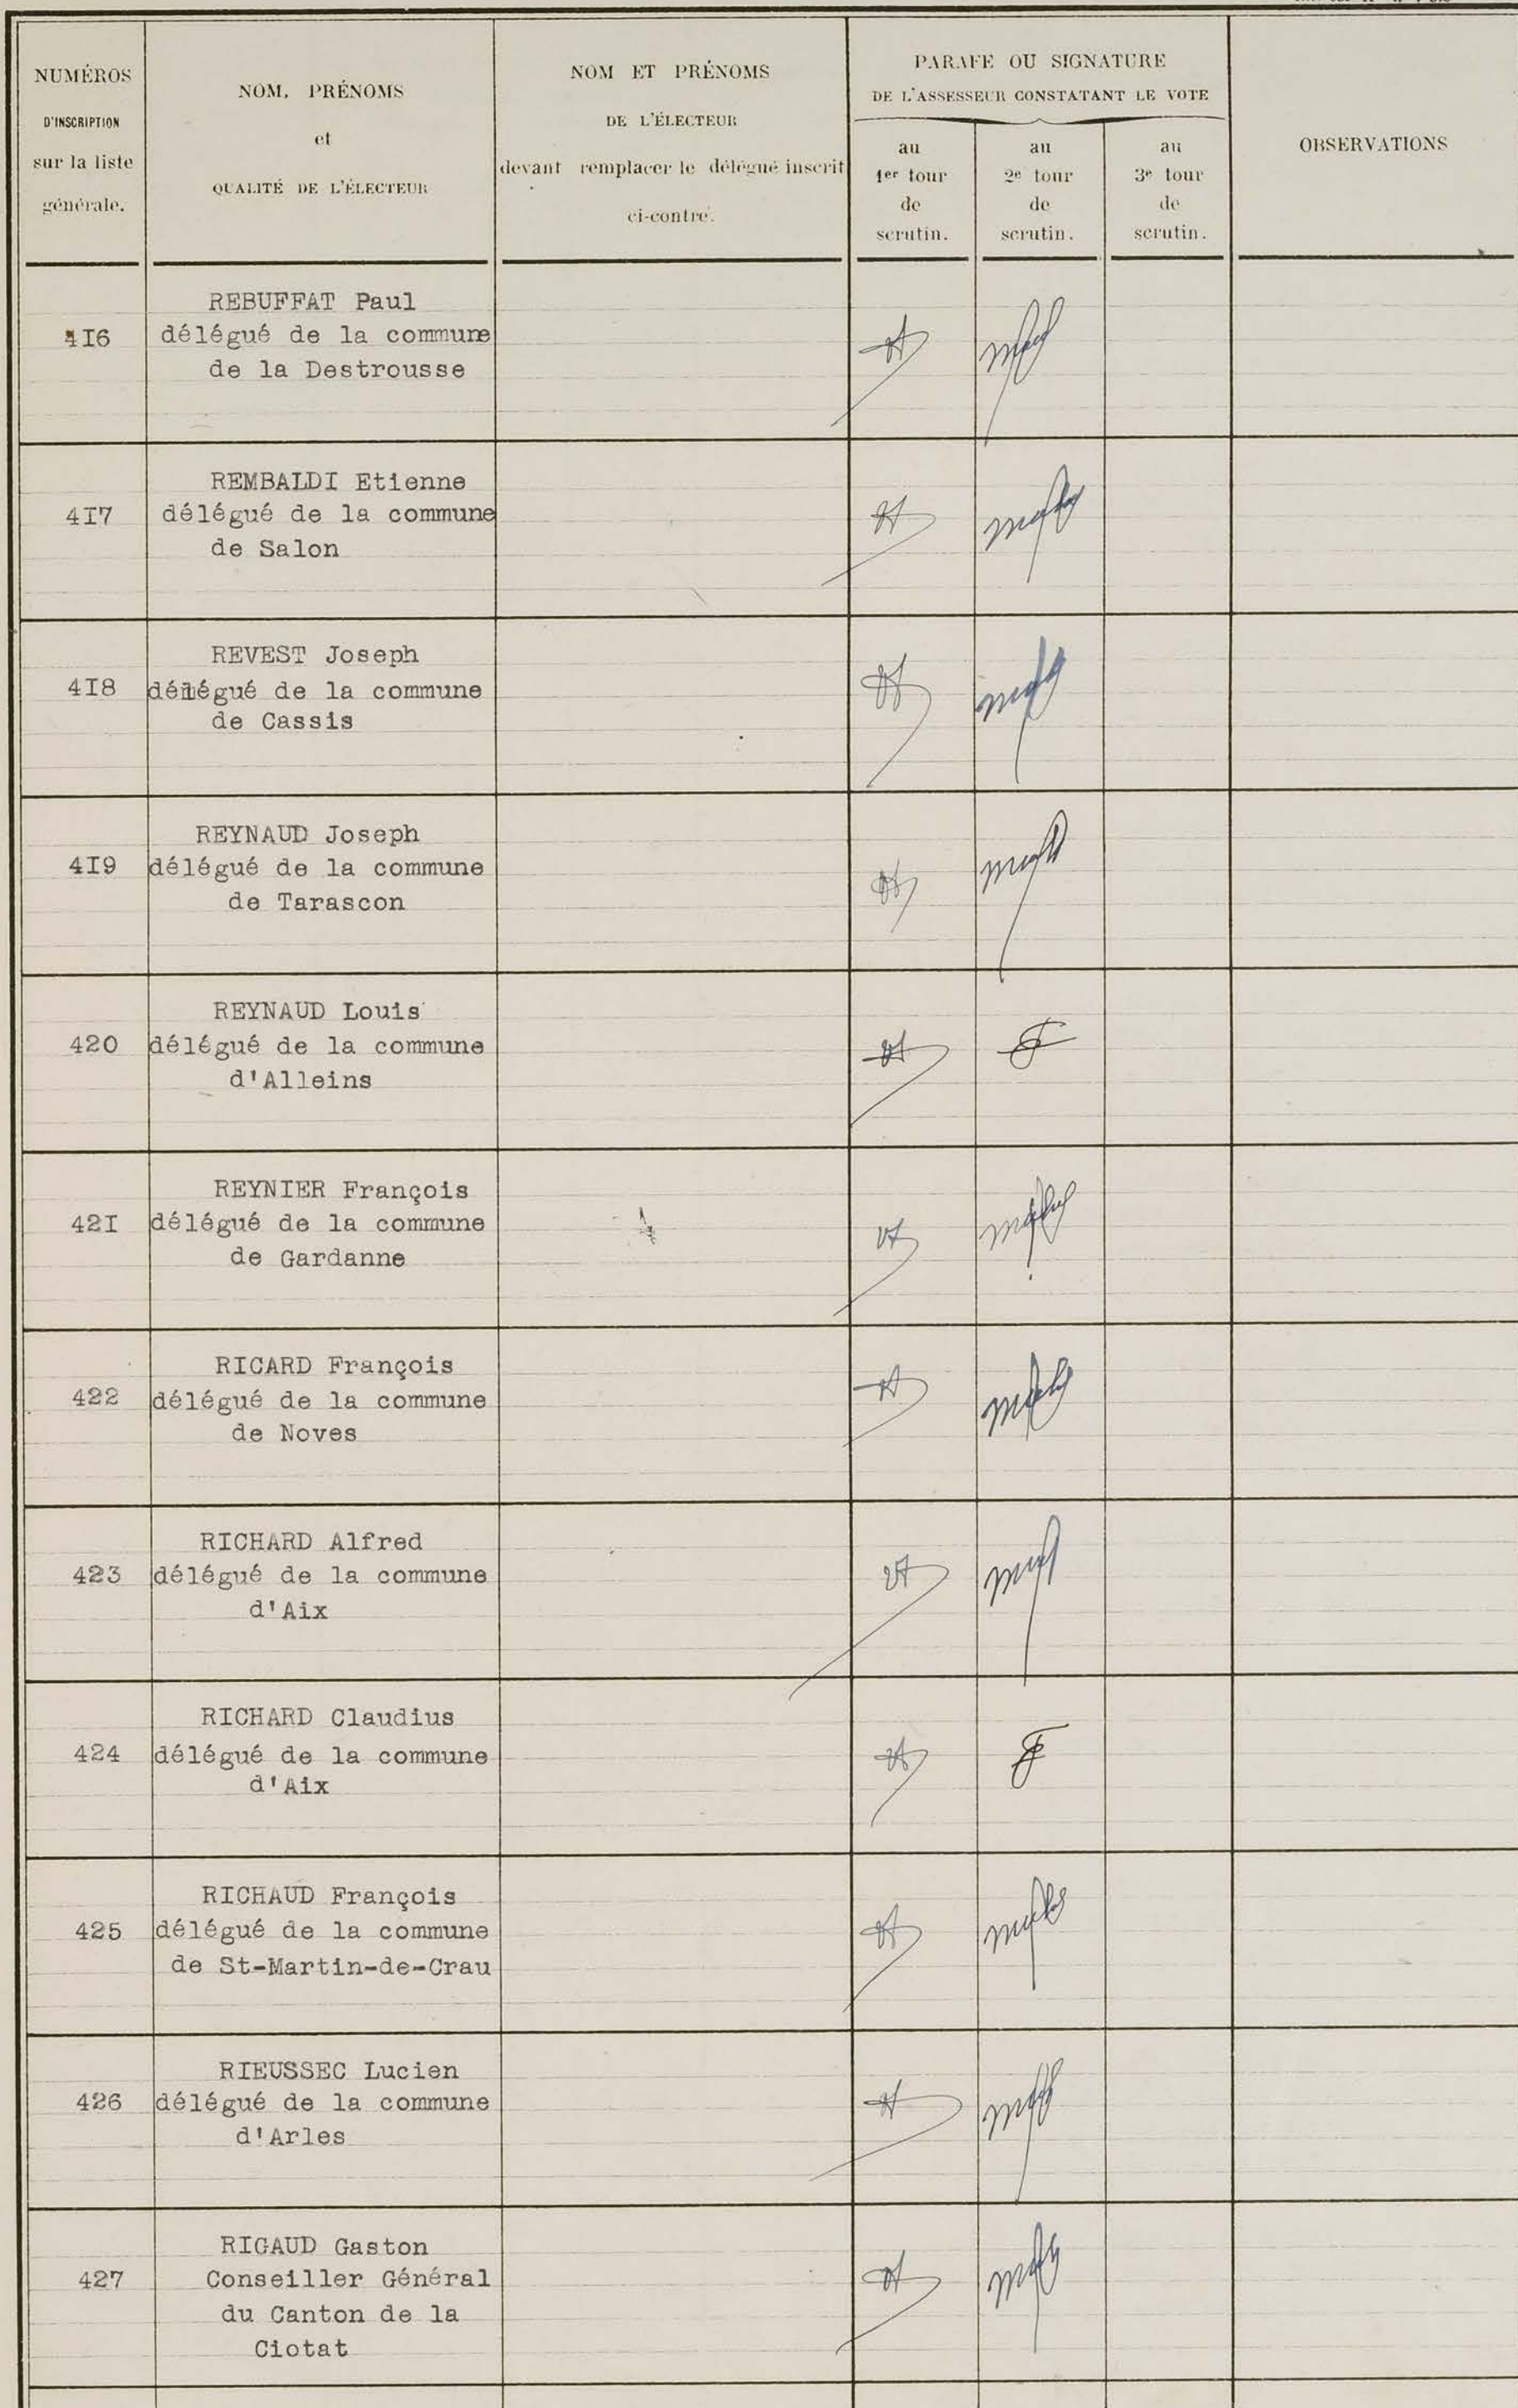 NUMÉROS
D'INSCRIPTION
sur la liste
générale.
NOM, PRÉNOMS
et
QUALITÉ DE L'ÉLECTEUR
NOM ET PRÉNOMS
DE L'ÉLECTEUR
devant remplacer le délégué inscrit
ci-contre.
PARAFE OU SIGNATURE
DE L'ASSESSEUR CONSTATANT LE VOTE
au
1er tour
de
scrutin.
au
2e tour
de
scrutin.
au
3e tour
de
scrutin.
OBSERVATIONS
4I6
REBUFFAT Paul
délégué de la commune
de la Destrousse
4I7
REMBALDI Etienne
délégué de la commune
de Salon
4I8
REVEST Joseph
délégué de la commune
de Cassis
4I9
REYNAUD Joseph
délégué de la commune
de Tarascon
420
REYNAUD Louis
délégué de la commune
d'Alleins
42I
REYNIER François
délégué de la commune
de Gardanne
422
RICARD François
délégué de la commune
de Noves
423
RICHARD Alfred
délégué de la commune
d'Aix
424
RICHARD Claudius
délégué de la commune
d'Aix
425
RICHAUD François
délégué de la commune
de St-Martin-de-Crau
426
RIEUSSEC Lucien
délégué de la commune
d'Arles
427
RIGAUD Gaston
Conseiller Général
du Canton de la
Ciotat